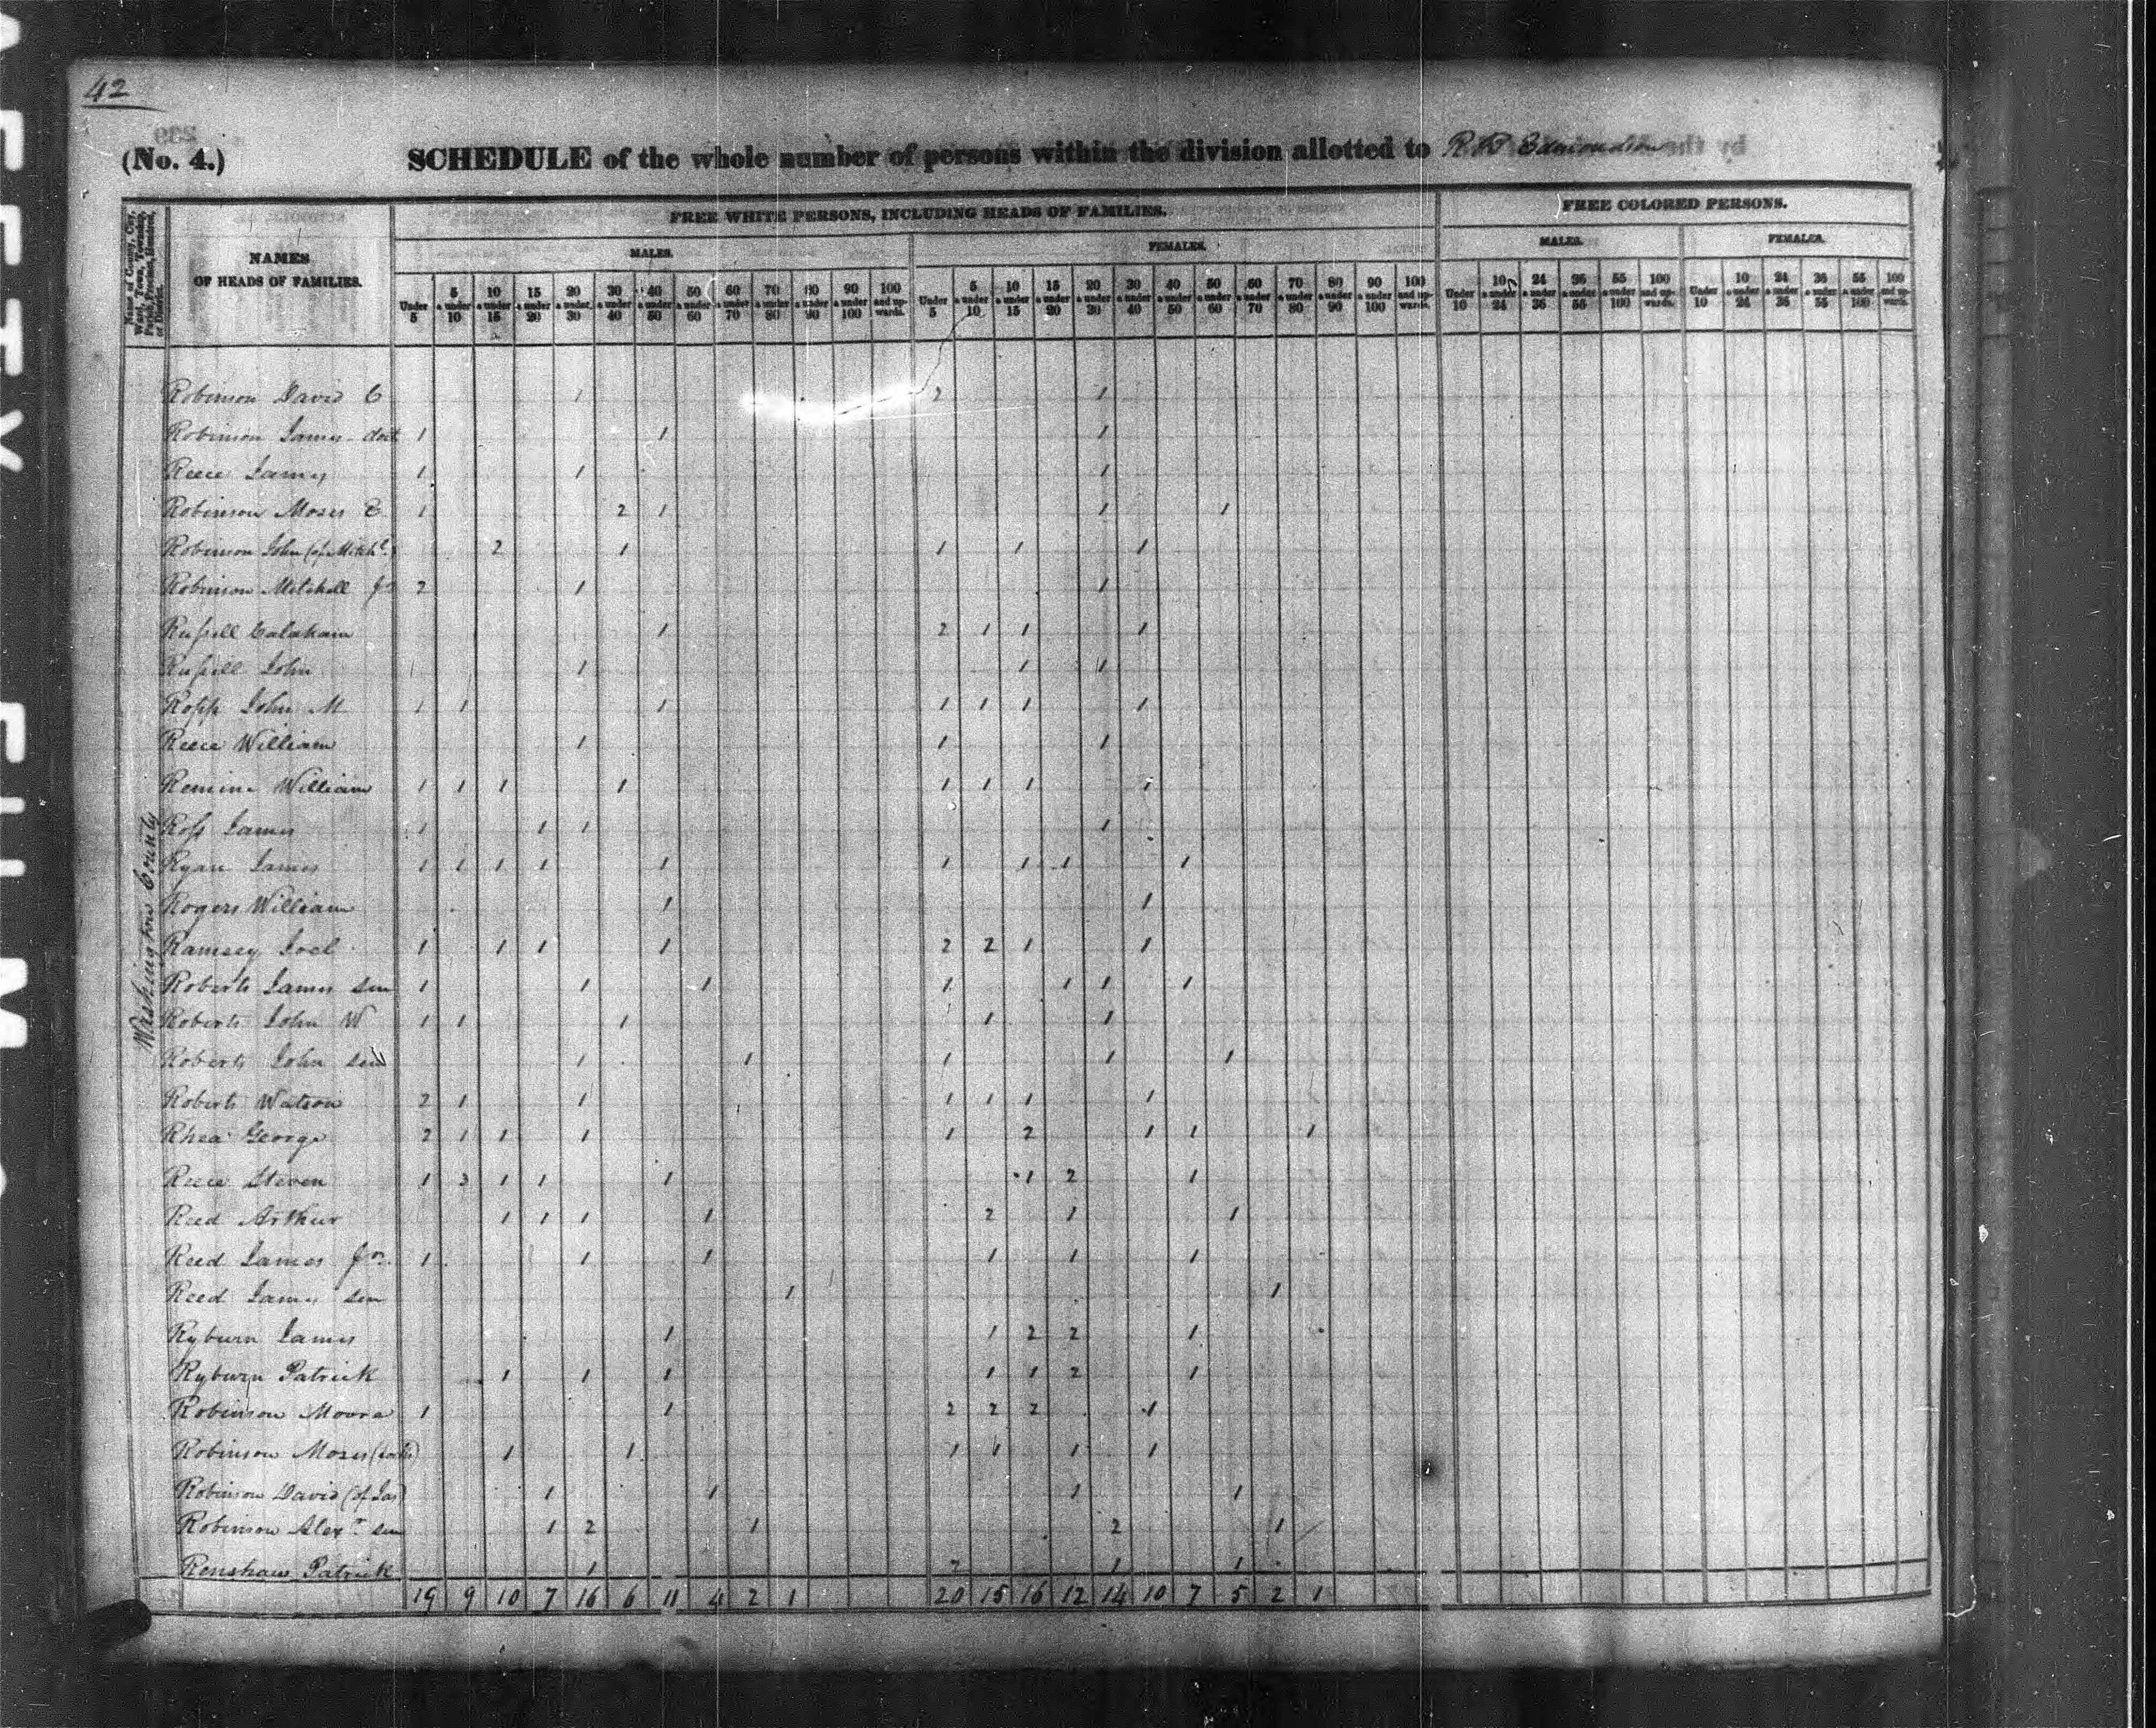 42
(No. 4.) SCHEDULE of the whole number of persons within the division allotted to R B Edmondson
FREE WHITE PERSONS, INCLUDING HEADS OF FAMILIES. FREE COLORED PERSONS.
Name of County, City, Ward, Town, Township, Parish, Precinct, Hundred, or District.
NAMES OF HEADS OF FAMILIES.
MALES. FEMALES. MALES. FEMALES.
Under 5 5 & under 10 10 & under 15 15 & under 20 20 & under 30 30 & under 40 40 & under 50 50 & under 60 60 & under 70 70 & under 80 80 & under 90 90 & under 100 100 and upwards. Under 5 5 & under 10 10 & under 15 15 & under 20 20 & under 30 30 & under 40 40 & under 50 50 & under 60 60 & under 70 70 & under 80 80 & under 90 90 & under 100 100 and upwards. Under 10 10 & under 24 24 & under 36 36 & under 55 55 & under 100 100 and upwards. Under 10 10 & under 24 24 & under 36 36 & under 55 55 & under 100 100 and upwards.
Washington County
Robinson David C 1 2 1
Robinson James 1 1 1
Reece James 1 1 1
Robinson Moses E 1 2 1 1 1
Robinson John (of Mitchl.) 2 1 1 1 1
Robinson Mitchell Jr 2 1 1
Russell Calahain 1 2 1 1 1
Russell John 1 1 1
Ropp John M 1 1 1 1 1 1 1
Reece William 1 1 1
Remine William 1 1 1 1 1 1 1 1
Ross James 1 1 1 1
Ryan James 1 1 1 1 1 1 1 1 1
Rogers William 1 1
Ramsey Joel 1 1 1 1 2 2 1 1
Roberts James sen 1 1 1 1 1 1 1
Roberts John W 1 1 1 1 1
Roberts John sen 1 1 1 1 1
Roberts Watson 2 1 1 1 1 1 1
Rhea George 2 1 1 1 1 2 1 1 1
Reece Steven 1 3 1 1 1 1 2 1
Reed Arthur 1 1 1 1 2 1 1
Reed James Jr. 1 1 1 1 1 1
Reed James sen 1 1
Ryburn James 1 1 2 2 1
Ryburn Patrick 1 1 1 1 1 2 1
Robinson Moore 1 1 2 2 2 1
Robinson Moses 1 1 1 1 1 1
Robinson David (of Jas) 1 1 1 1
Robinson Alexr sen 1 2 1 2 1
Renshaw Patrick 1 2 1 1
19 9 10 7 16 6 11 4 2 1 20 15 16 12 14 10 7 5 2 1